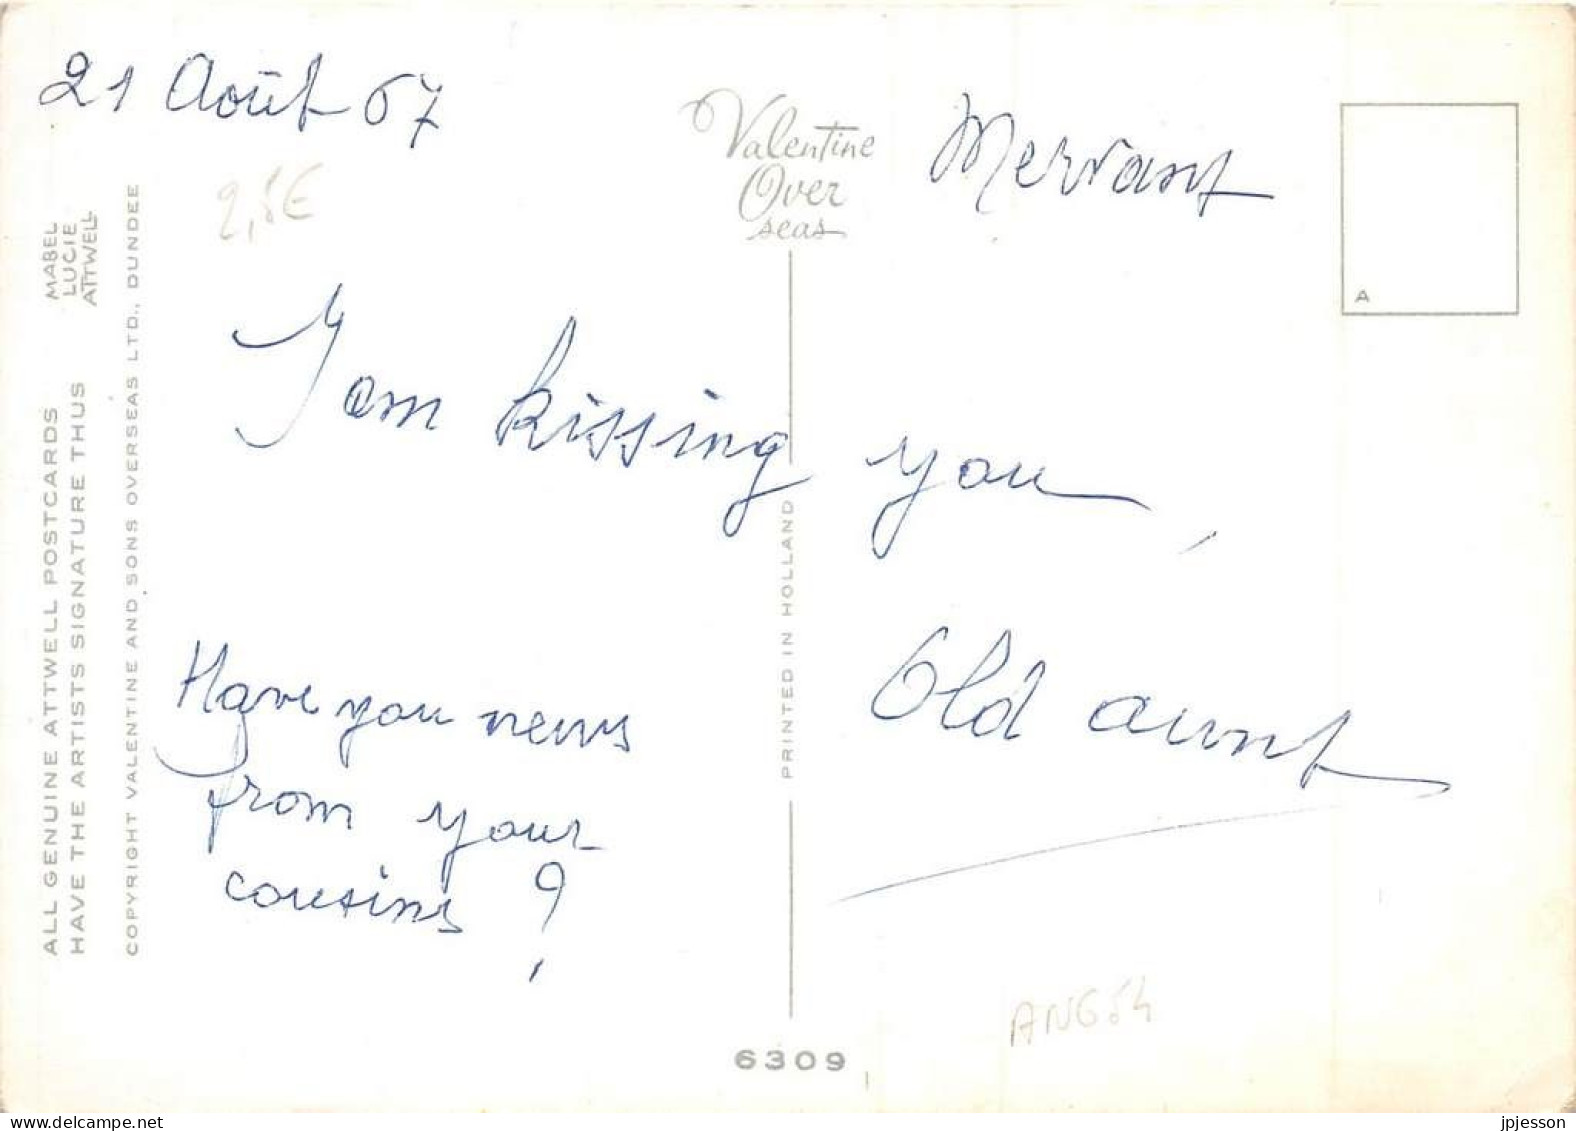 21 Août 67
2,5€
Valentine
Over
seas
Mervant
A
MABEL
LUCIE
ATTWELL
ALL GENUINE ATTWELL POSTCARDS
HAVE THE ARTISTS SIGNATURE THUS
COPYRIGHT VALENTINE AND SONS OVERSEAS LTD., DUNDEE
I am kissing you,
PRINTED IN HOLLAND
Old aunt
Have you news
from your
cousins ?
ANG 54
6309
delcampe.net
jpjesson